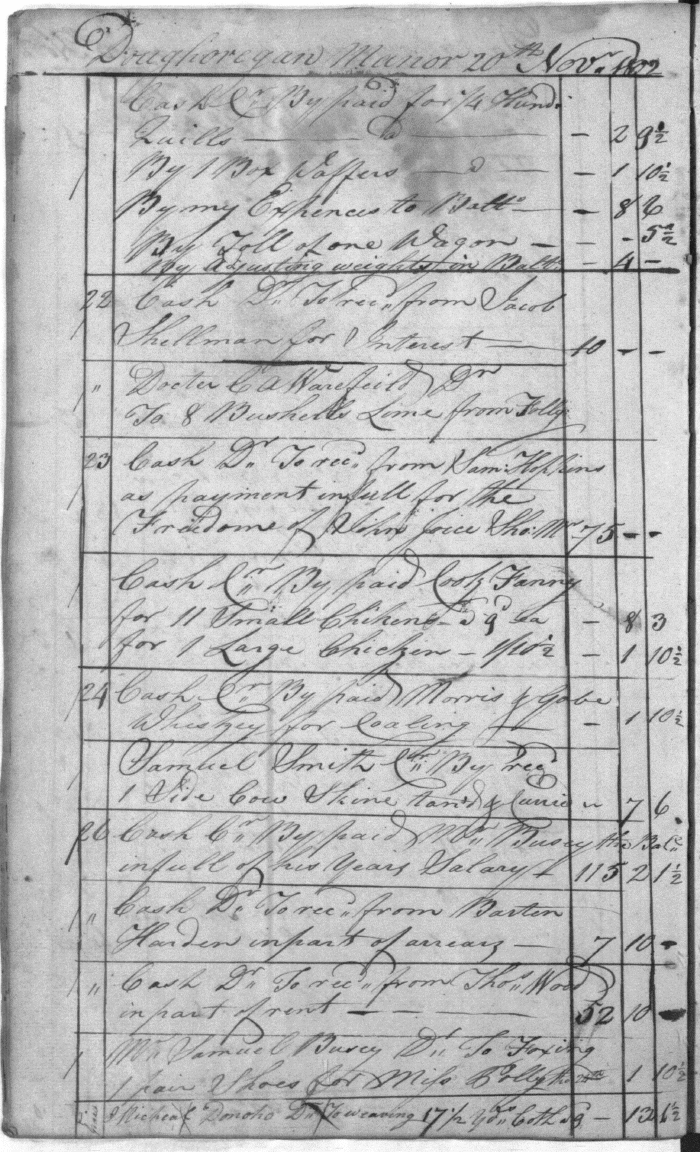 Doughoregan Manor 20th Novr. 1802
Cash Cr. By paid for 1/4 Hund.
Quills — Do — - 2 9½
By 1 Box Waffers — Do — - 1 10½
By my Expences to Balto. — - 8 6
By Toll of one Wagon — - - 5½
By Adjusting weights in Balto. - 4 -
22 Cash Dr. To rec'd from Jacob
Shellman for Interest — 10 - -
" Docter C A Warefeild Dr
To 8 Bushells Lime from Folly
23 Cash Dr. To rec'd from Sam: Hopkins
as payment infull for the
Freedome of John Joice 75 - -
Cash Cr. By paid Cook Fanny
for 11 Small Chikens @ 9d ea - 8 3
for 1 Large Chicken - 1/10½ - 1 10½
24 Cash Cr By paid Morris & Gabe
Whiskey for Coaling - 1 10½
Samuel Smith Cr. By rec'd
1 Side Cow Skine tan'd & Currie 7 6
26 Cash Cr. By paid Mr. Busey the Balce.
infull of his Years Salary 115 2 1½
" Cash Dr. To rec'd from Barten
Harden inpart of arrears — 7 10 -
" Cash Dr. To rec'd from Thos. Wood
inpart of rent — 52 10 -
Mr. Samuel Busey Dr. To Foxing
1 pair Shoes for Miss Polly 1 10½
Micheal Donoho Dr. To weaving 17½ Yds. Coth - 13 1½